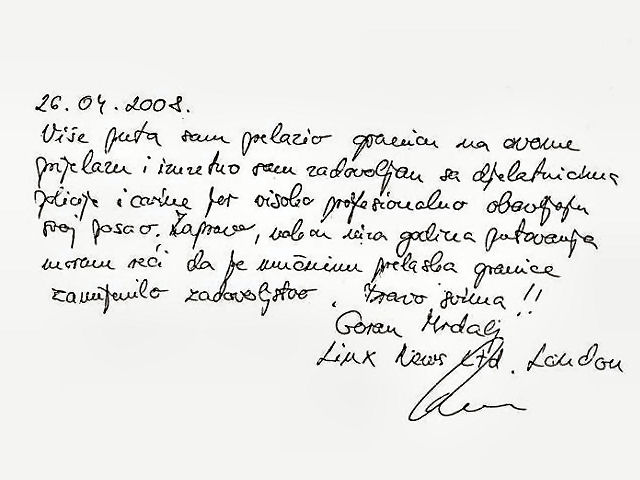 26.04.2008.
Više puta sam prelazio granicu na ovome
prijelazu i izuzetno sam zadovoljan sa djelatnicima
policije i carine jer visoko profesionalno obavljaju
svoj posao. Zapravo, nakon niza godina putovanja
moram reći da je mučninu prelaska granice
zamijenilo zadovoljstvo. Bravo svima!!
Goran Mrdalj
Linx News Ltd. London